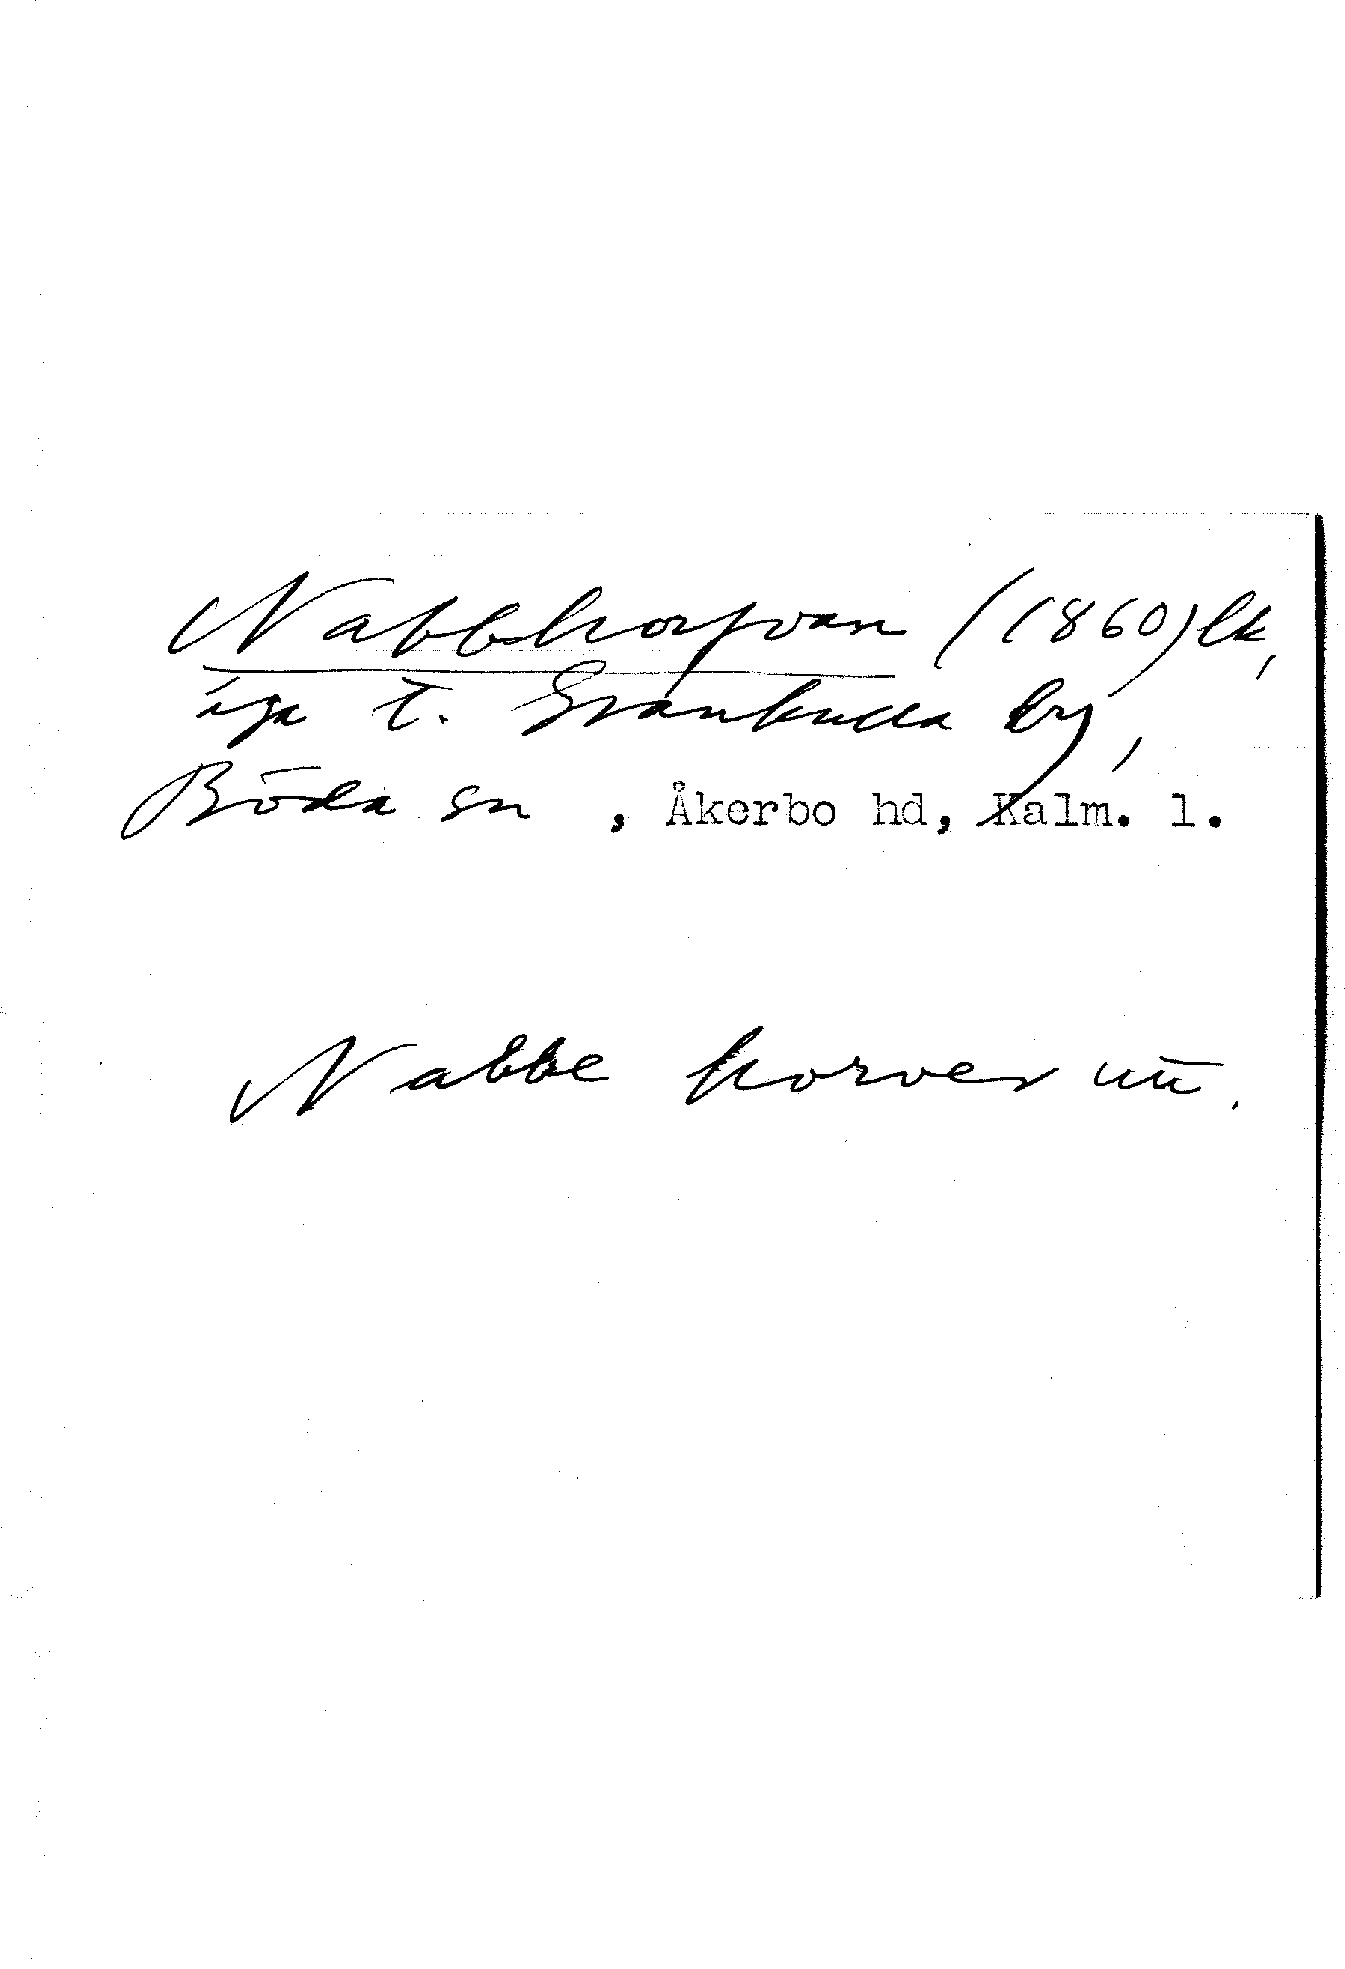 Nabbkorfvan (1860) lk,
äga t. Grankulla by,
Böda sn, Åkerbo hd, Kalm. l.
Nabbe korver